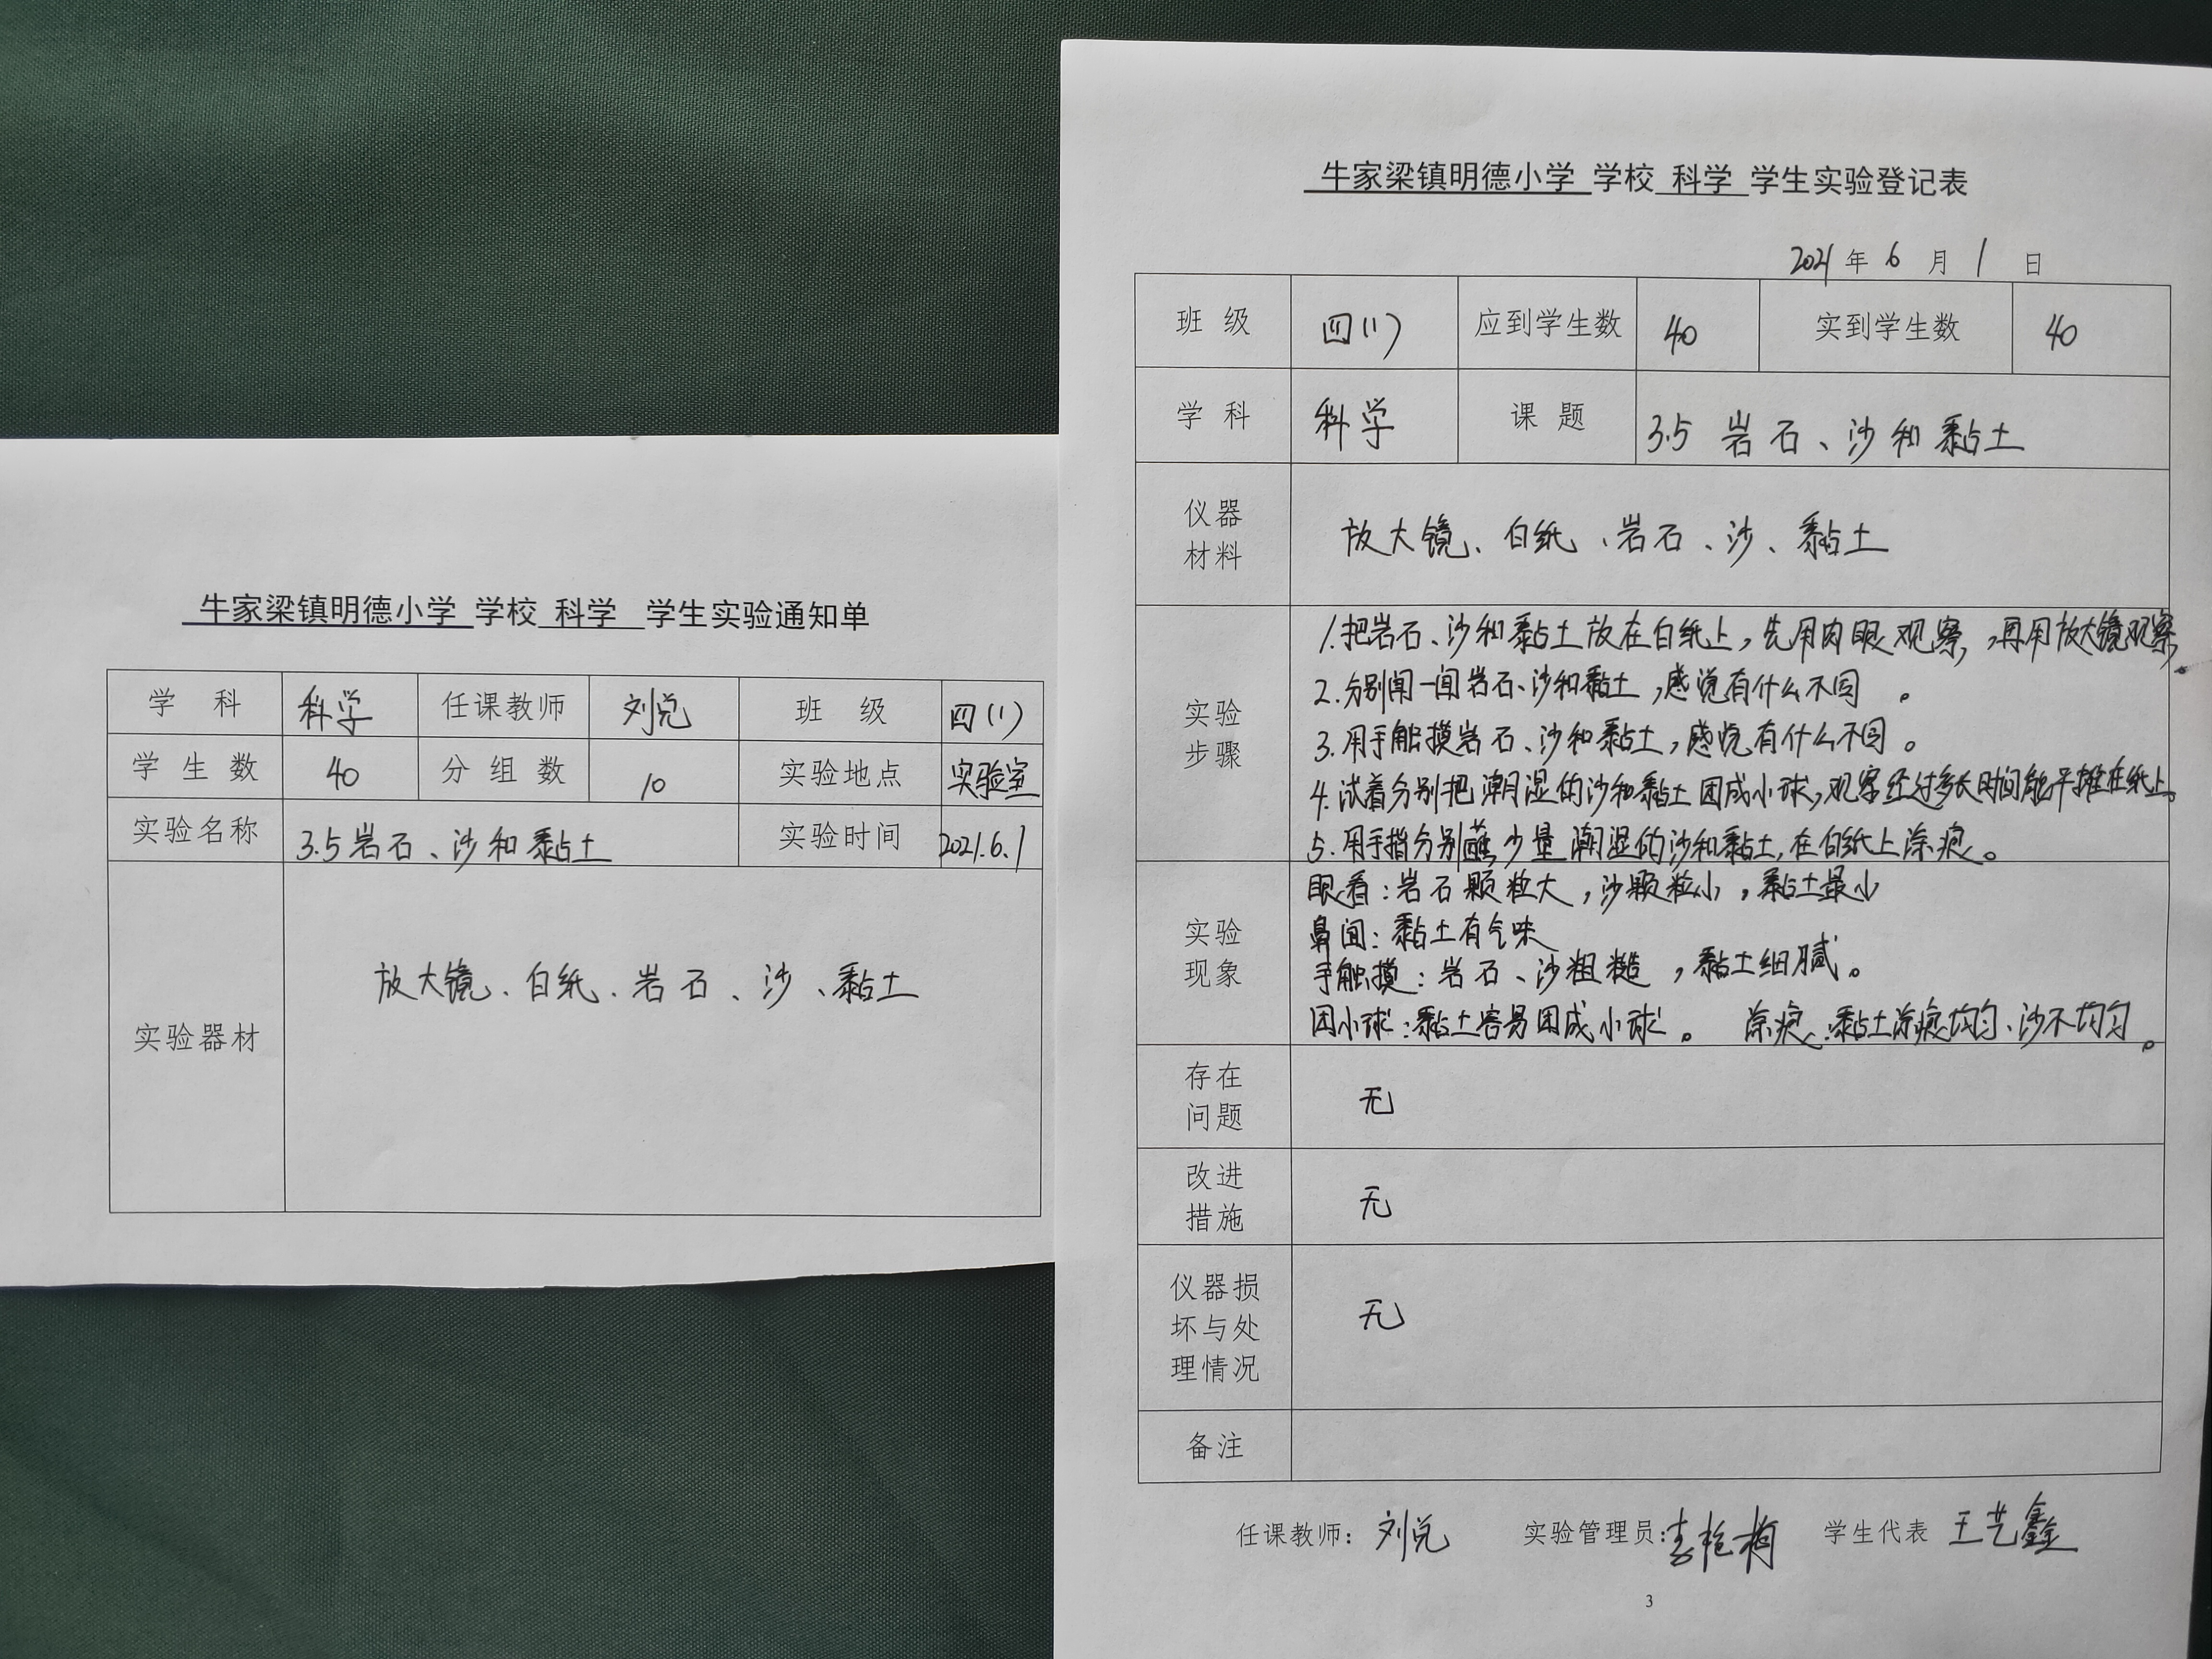 牛家梁镇明德小学 学校 科学 学生实验通知单
学 科 科学 任课教师 刘兑 班 级 四(1)
学 生 数 40 分 组 数 10 实验地点 实验室
实验名称 3.5岩石、沙和黏土 实验时间 2021.6.1
实验器材 放大镜、白纸、岩石、沙、黏土
牛家梁镇明德小学 学校 科学 学生实验登记表
2021年6月1日
班 级 四(1) 应到学生数 40 实到学生数 40
学 科 科学 课 题 3.5 岩石、沙和黏土
仪器
材料
放大镜、白纸、岩石、沙、黏土
实验
步骤
1.把岩石、沙和黏土放在白纸上,先用肉眼观察,再用放大镜观察。
2.分别闻一闻岩石、沙和黏土,感觉有什么不同。
3.用手触摸岩石、沙和黏土,感觉有什么不同。
4.试着分别把潮湿的沙和黏土团成小球,观察经过多长时间能平摊在纸上。
5.用手指分别蘸少量潮湿的沙和黏土,在白纸上涂痕。
实验
现象
眼看:岩石颗粒大,沙颗粒小,黏土最小
鼻闻:黏土有气味
手触摸:岩石、沙粗糙,黏土细腻。
团小球:黏土容易团成小球。 涂痕:黏土涂痕均匀、沙不均匀。
存在
问题
无
改进
措施
无
仪器损
坏与处
理情况
无
备注
任课教师: 刘兑 实验管理员: 学生代表 王艺鑫
3